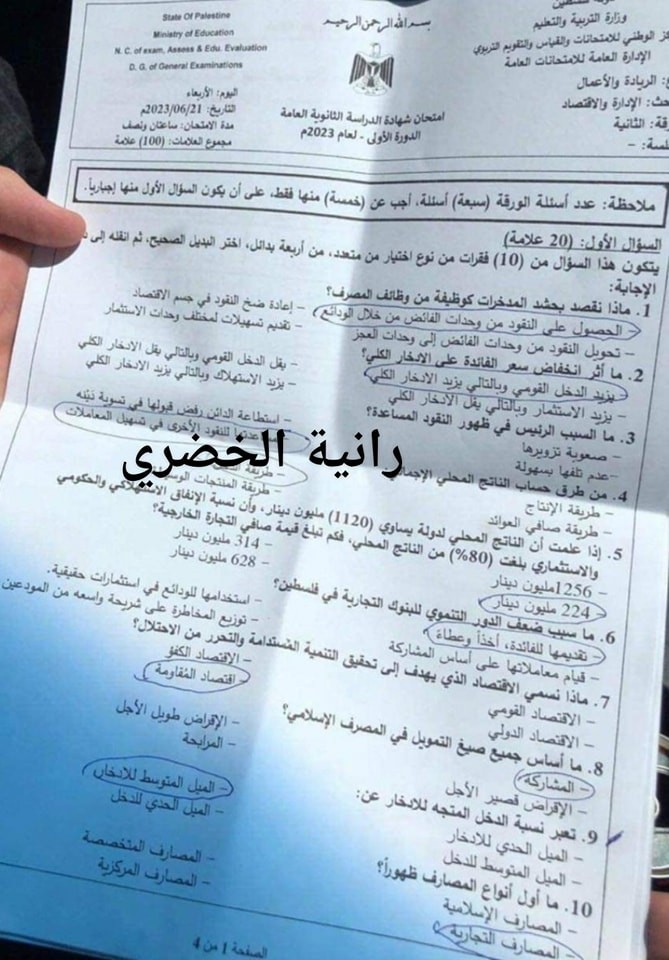 State Of Palestine
Ministry of Education
N. C. of exam, Assess & Edu. Evaluation
D. G. of General Examinations
بسم الله الرحمن الرحيم
وزارة التربية والتعليم
الوطني للامتحانات والقياس والتقويم التربوي
الإدارة العامة للامتحانات العامة
اليوم: الأربعاء
التاريخ: 2023/06/21م
مدة الامتحان: ساعتان ونصف
مجموع العلامات: (100) علامة
امتحان شهادة الدراسة الثانوية العامة
الدورة الأولى - لعام 2023م
الريادة والأعمال
الإدارة والاقتصاد
الثانية
ملاحظة: عدد أسئلة الورقة (سبعة) أسئلة، أجب عن (خمسة) منها فقط، على أن يكون السؤال الأول منها إجبارياً.
السؤال الأول: (20 علامة)
يتكون هذا السؤال من (10) فقرات من نوع اختيار من متعدد، من أربعة بدائل، اختر البديل الصحيح، ثم انقله إلى
الإجابة:
1. ماذا نقصد بحشد المدخرات كوظيفة من وظائف المصرف؟
- الحصول على النقود من وحدات الفائض من خلال الودائع
- إعادة ضخ النقود في جسم الاقتصاد
- تحويل النقود من وحدات الفائض إلى وحدات العجز
- تقديم تسهيلات لمختلف وحدات الاستثمار
2. ما أثر انخفاض سعر الفائدة على الادخار الكلي؟
- يزيد الدخل القومي وبالتالي يزيد الادخار الكلي
- يقل الدخل القومي وبالتالي يقل الادخار الكلي
- يزيد الاستثمار وبالتالي يقل الادخار الكلي
- يزيد الاستهلاك وبالتالي يزيد الادخار الكلي
3. ما السبب الرئيس في ظهور النقود المساعدة؟
- صعوبة تزويرها
- استطاعة الدائن رفض قبولها في تسوية دينه
- عدم تلفها بسهولة
للنقود الأخرى في تسهيل المعاملات
رانية الخضري
4. من طرق حساب الناتج المحلي
- طريقة الإنتاج
- طريقة
- طريقة صافي العوائد
- طريقة المنتجات
5. إذا علمت أن الناتج المحلي لدولة يساوي (1120) مليون دينار، وأن نسبة الإنفاق الاستهلاكي والحكومي
والاستثماري بلغت (80%) من الناتج المحلي، فكم تبلغ قيمة صافي التجارة الخارجية؟
- 1256مليون دينار
- 314 مليون دينار
- 224 مليون دينار
- 628 مليون دينار
6. ما سبب ضعف الدور التنموي للبنوك التجارية في فلسطين؟
- تقديمها للفائدة، أخذاً وعطاءً
- استخدامها للودائع في استثمارات حقيقية.
- قيام معاملاتها على أساس المشاركة
- توزيع المخاطرة على شريحة واسعه من المودعين
7. ماذا نسمي الاقتصاد الذي يهدف إلى تحقيق التنمية المستدامة والتحرر من الاحتلال؟
- الاقتصاد القومي
- الاقتصاد الكفو
- الاقتصاد الدولي
- اقتصاد المُقاومة
8. ما أساس جميع صيغ التمويل في المصرف الإسلامي؟
- المشاركة
- الإقراض طويل الأجل
- الإقراض قصير الأجل
- المرابحة
9. تعبر نسبة الدخل المتجه للادخار عن:
- الميل الحدي للادخار
- الميل المتوسط للادخار
- الميل المتوسط للدخل
- الميل الحدي للدخل
10. ما أول أنواع المصارف ظهوراً؟
- المصارف الإسلامية
- المصارف المتخصصة
- المصارف التجارية
- المصارف المركزية
الصفحة 1 من 4